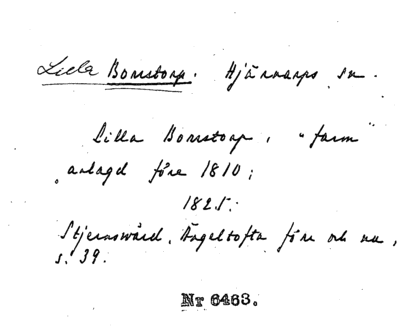 Lilla Bonstorp. Hjärnarps sn.
Lilla Bonstorp, "farm"
anlagd före 1810;
1825:
Stjernswärd, Ängeltofta före och nu,
s. 39.
Nr 6463.